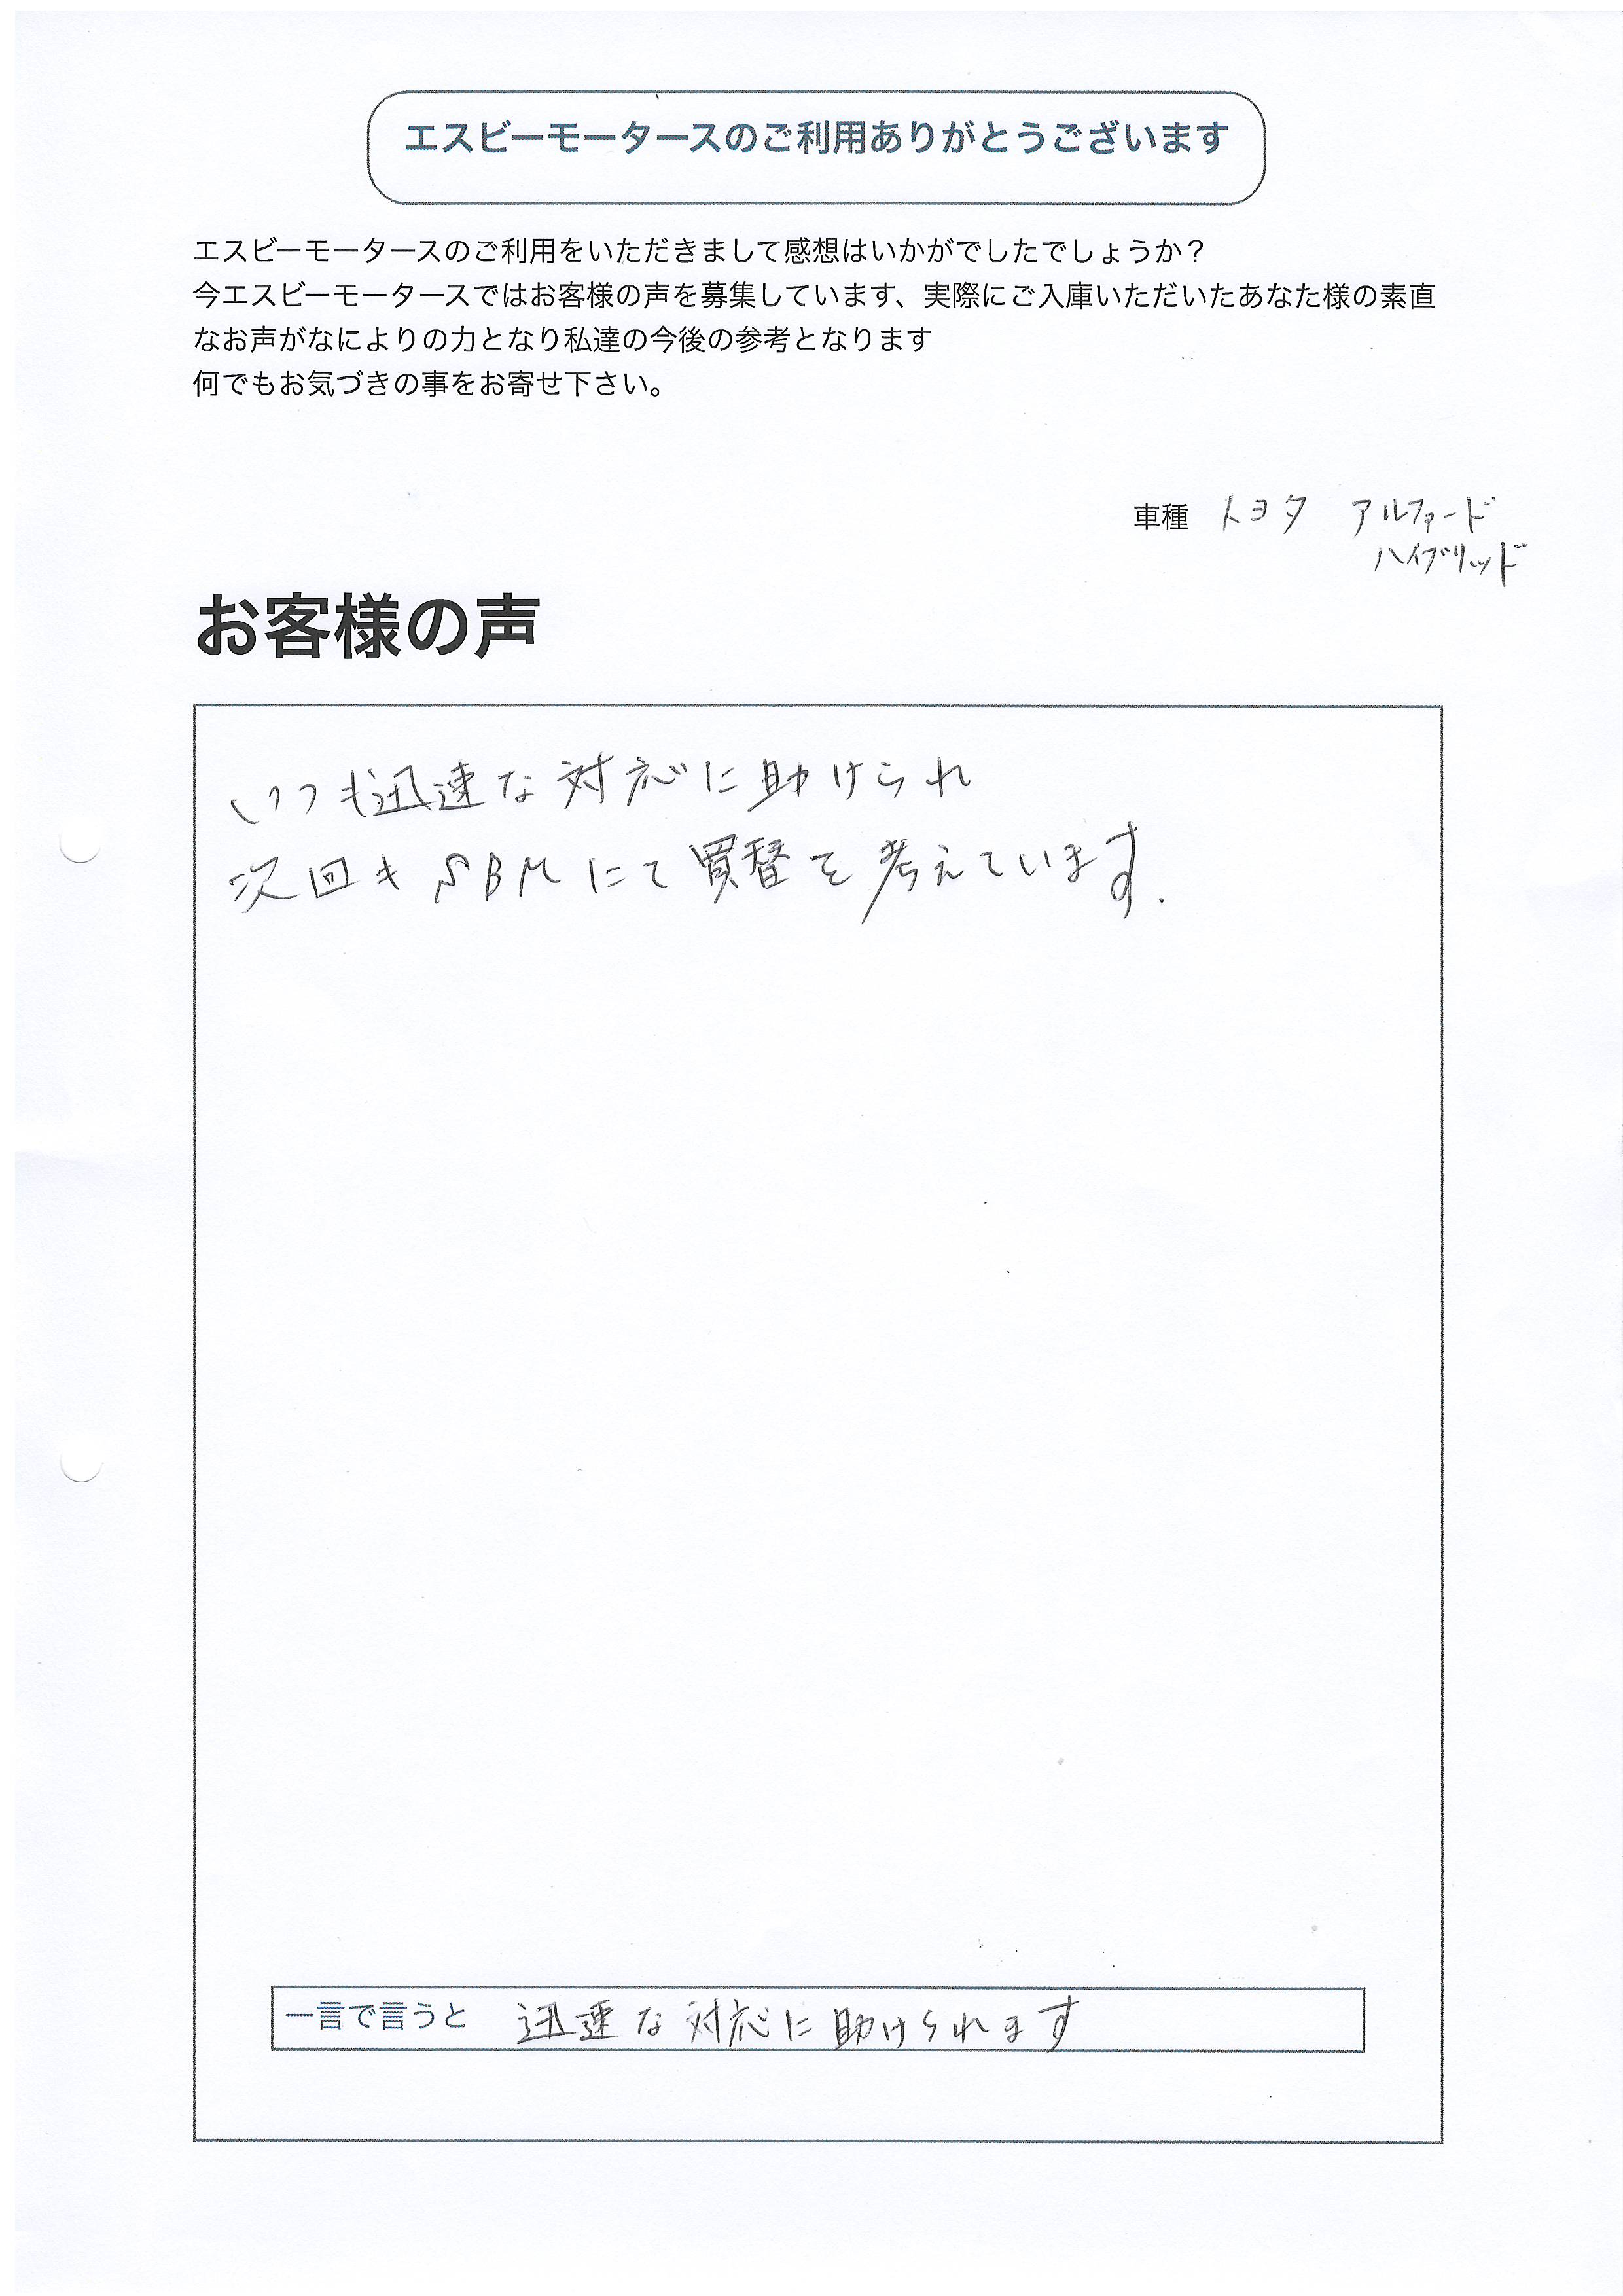 エスビーモータースのご利用ありがとうございます
エスビーモータースのご利用をいただきまして感想はいかがでしたでしょうか？
今エスビーモータースではお客様の声を募集しています、実際にご入庫いただいたあなた様の素直
なお声がなによりの力となり私達の今後の参考となります
何でもお気づきの事をお寄せ下さい。
車種 トヨタ アルファード
ハイブリッド
お客様の声
いつも迅速な対応に助けられ
次回もSBMにて買替を考えています.
一言で言うと 迅速な対応に助けられます